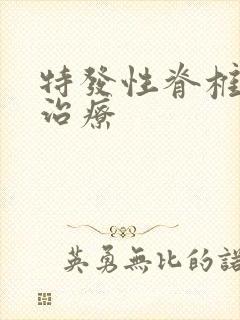 特發性脊柱
治療
英勇無比的諾